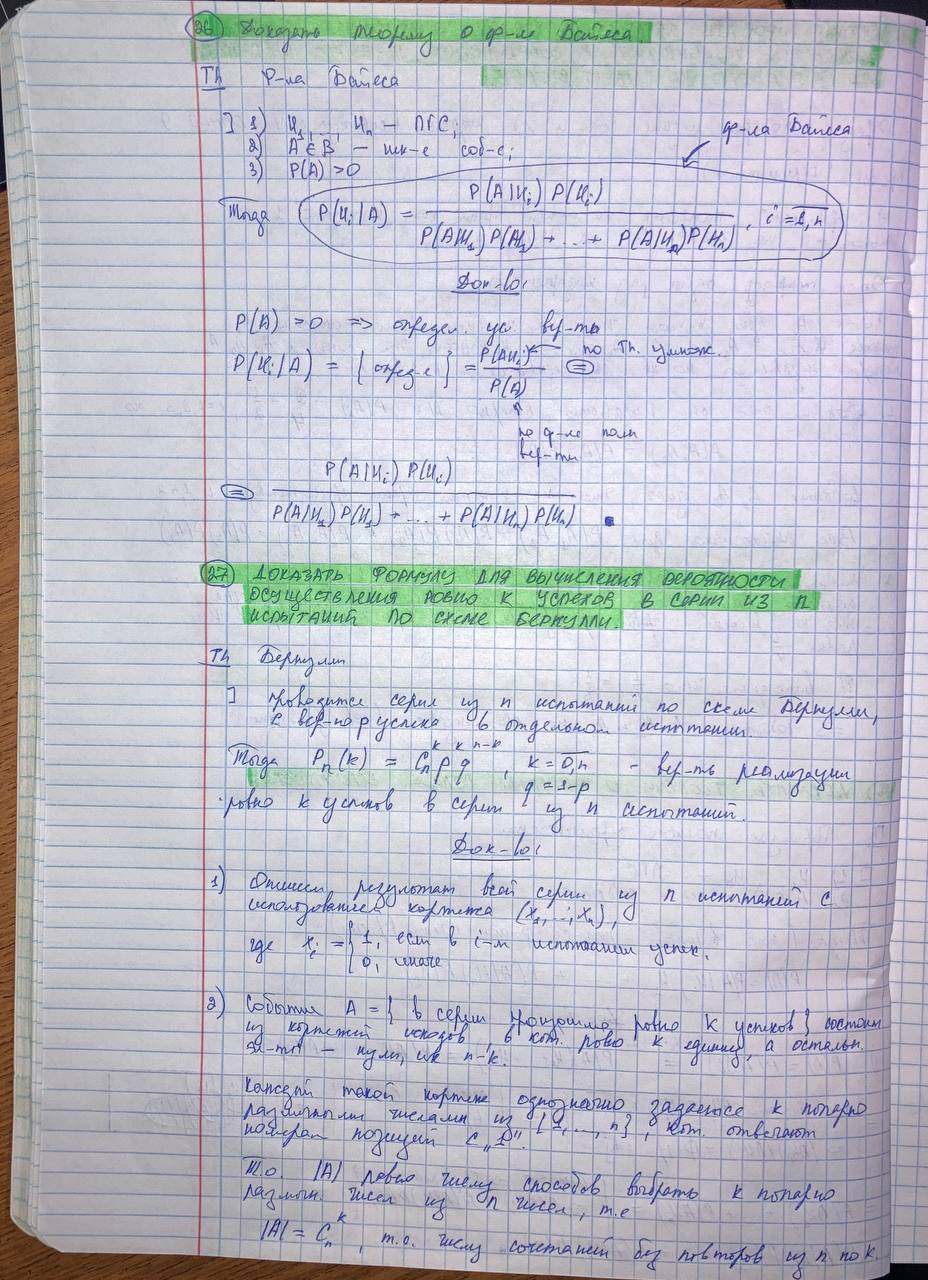 26 Доказать теорему о ф-ле Байеса.
Th Ф-ла Байеса
] 1) H₁, ..., Hₙ – ПГС;
2) A ∈ B – нек-е соб-е;
3) P(A) > 0
ф-ла Байеса
Тогда P(Hᵢ|A) = P(A|Hᵢ) P(Hᵢ) / (P(A|H₁)P(H₁) + ... + P(A|Hₙ)P(Hₙ)), i = 1,n
Док-во:
P(A) > 0 => определ. усл. вер-ть
P(Hᵢ|A) = { опред-е } = P(AHᵢ) / P(A) ← по Th. умнож. =
по ф-ле полн
вер-ти
= P(A|Hᵢ) P(Hᵢ) / (P(A|H₁)P(H₁) + ... + P(A|Hₙ)P(Hₙ))
27 ДОКАЗАТЬ ФОРМУЛУ ДЛЯ ВЫЧИСЛЕНИЯ ВЕРОЯТНОСТИ
ОСУЩЕСТВЛЕНИЯ РОВНО K УСПЕХОВ В СЕРИИ ИЗ П
ИСПЫТАНИЙ ПО СХЕМЕ БЕРНУЛЛИ.
Th Бернулли
] проводится серия из n испытаний по схеме Бернулли,
с вер-ю p успеха в отдельном испытании.
Тогда Pₙ(k) = Cₙᵏ pᵏ qⁿ⁻ᵏ, k = 0,n – вер-ть реализации
q = 1-p
ровно k успехов в серии из n испытаний.
Док-во:
1) Опишем результат всей серии из n испытаний с
использованием кортежа (x₁, ..., xₙ),
где xᵢ = { 1, если в i-м испытании успех.
0, иначе
2) Событие A = { в серии произошло ровно k успехов } состоит
из кортежей исходов, в кот. ровно k единиц, а остальн.
эл-ты – нули, их n-k.
Каждый такой кортеж однозначно задается k попарно
различными числами из {1, ..., n}, кот. отвечают
номерам позиций с „1".
Т.о. |A| равно числу способов выбрать k попарно
различн. чисел из n чисел, т.е
|A| = Cₙᵏ, т.о. числу сочетаний без повторов из n по k.